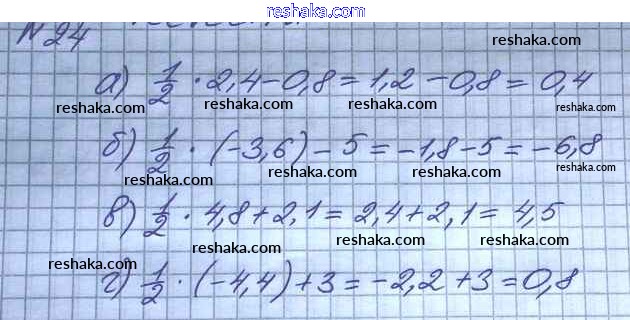 reshaka.com
№24
reshaka.com
а) 1/2 · 2,4 - 0,8 = 1,2 - 0,8 = 0,4
reshaka.com reshaka.com reshaka.com reshaka.com
б) 1/2 · (-3,6) - 5 = -1,8 - 5 = -6,8
reshaka.com reshaka.com reshaka.com reshaka.com
в) 1/2 · 4,8 + 2,1 = 2,4 + 2,1 = 4,5
reshaka.com reshaka.com reshaka.com reshaka.com
г) 1/2 · (-4,4) + 3 = -2,2 + 3 = 0,8
reshaka.com reshaka.com reshaka.com